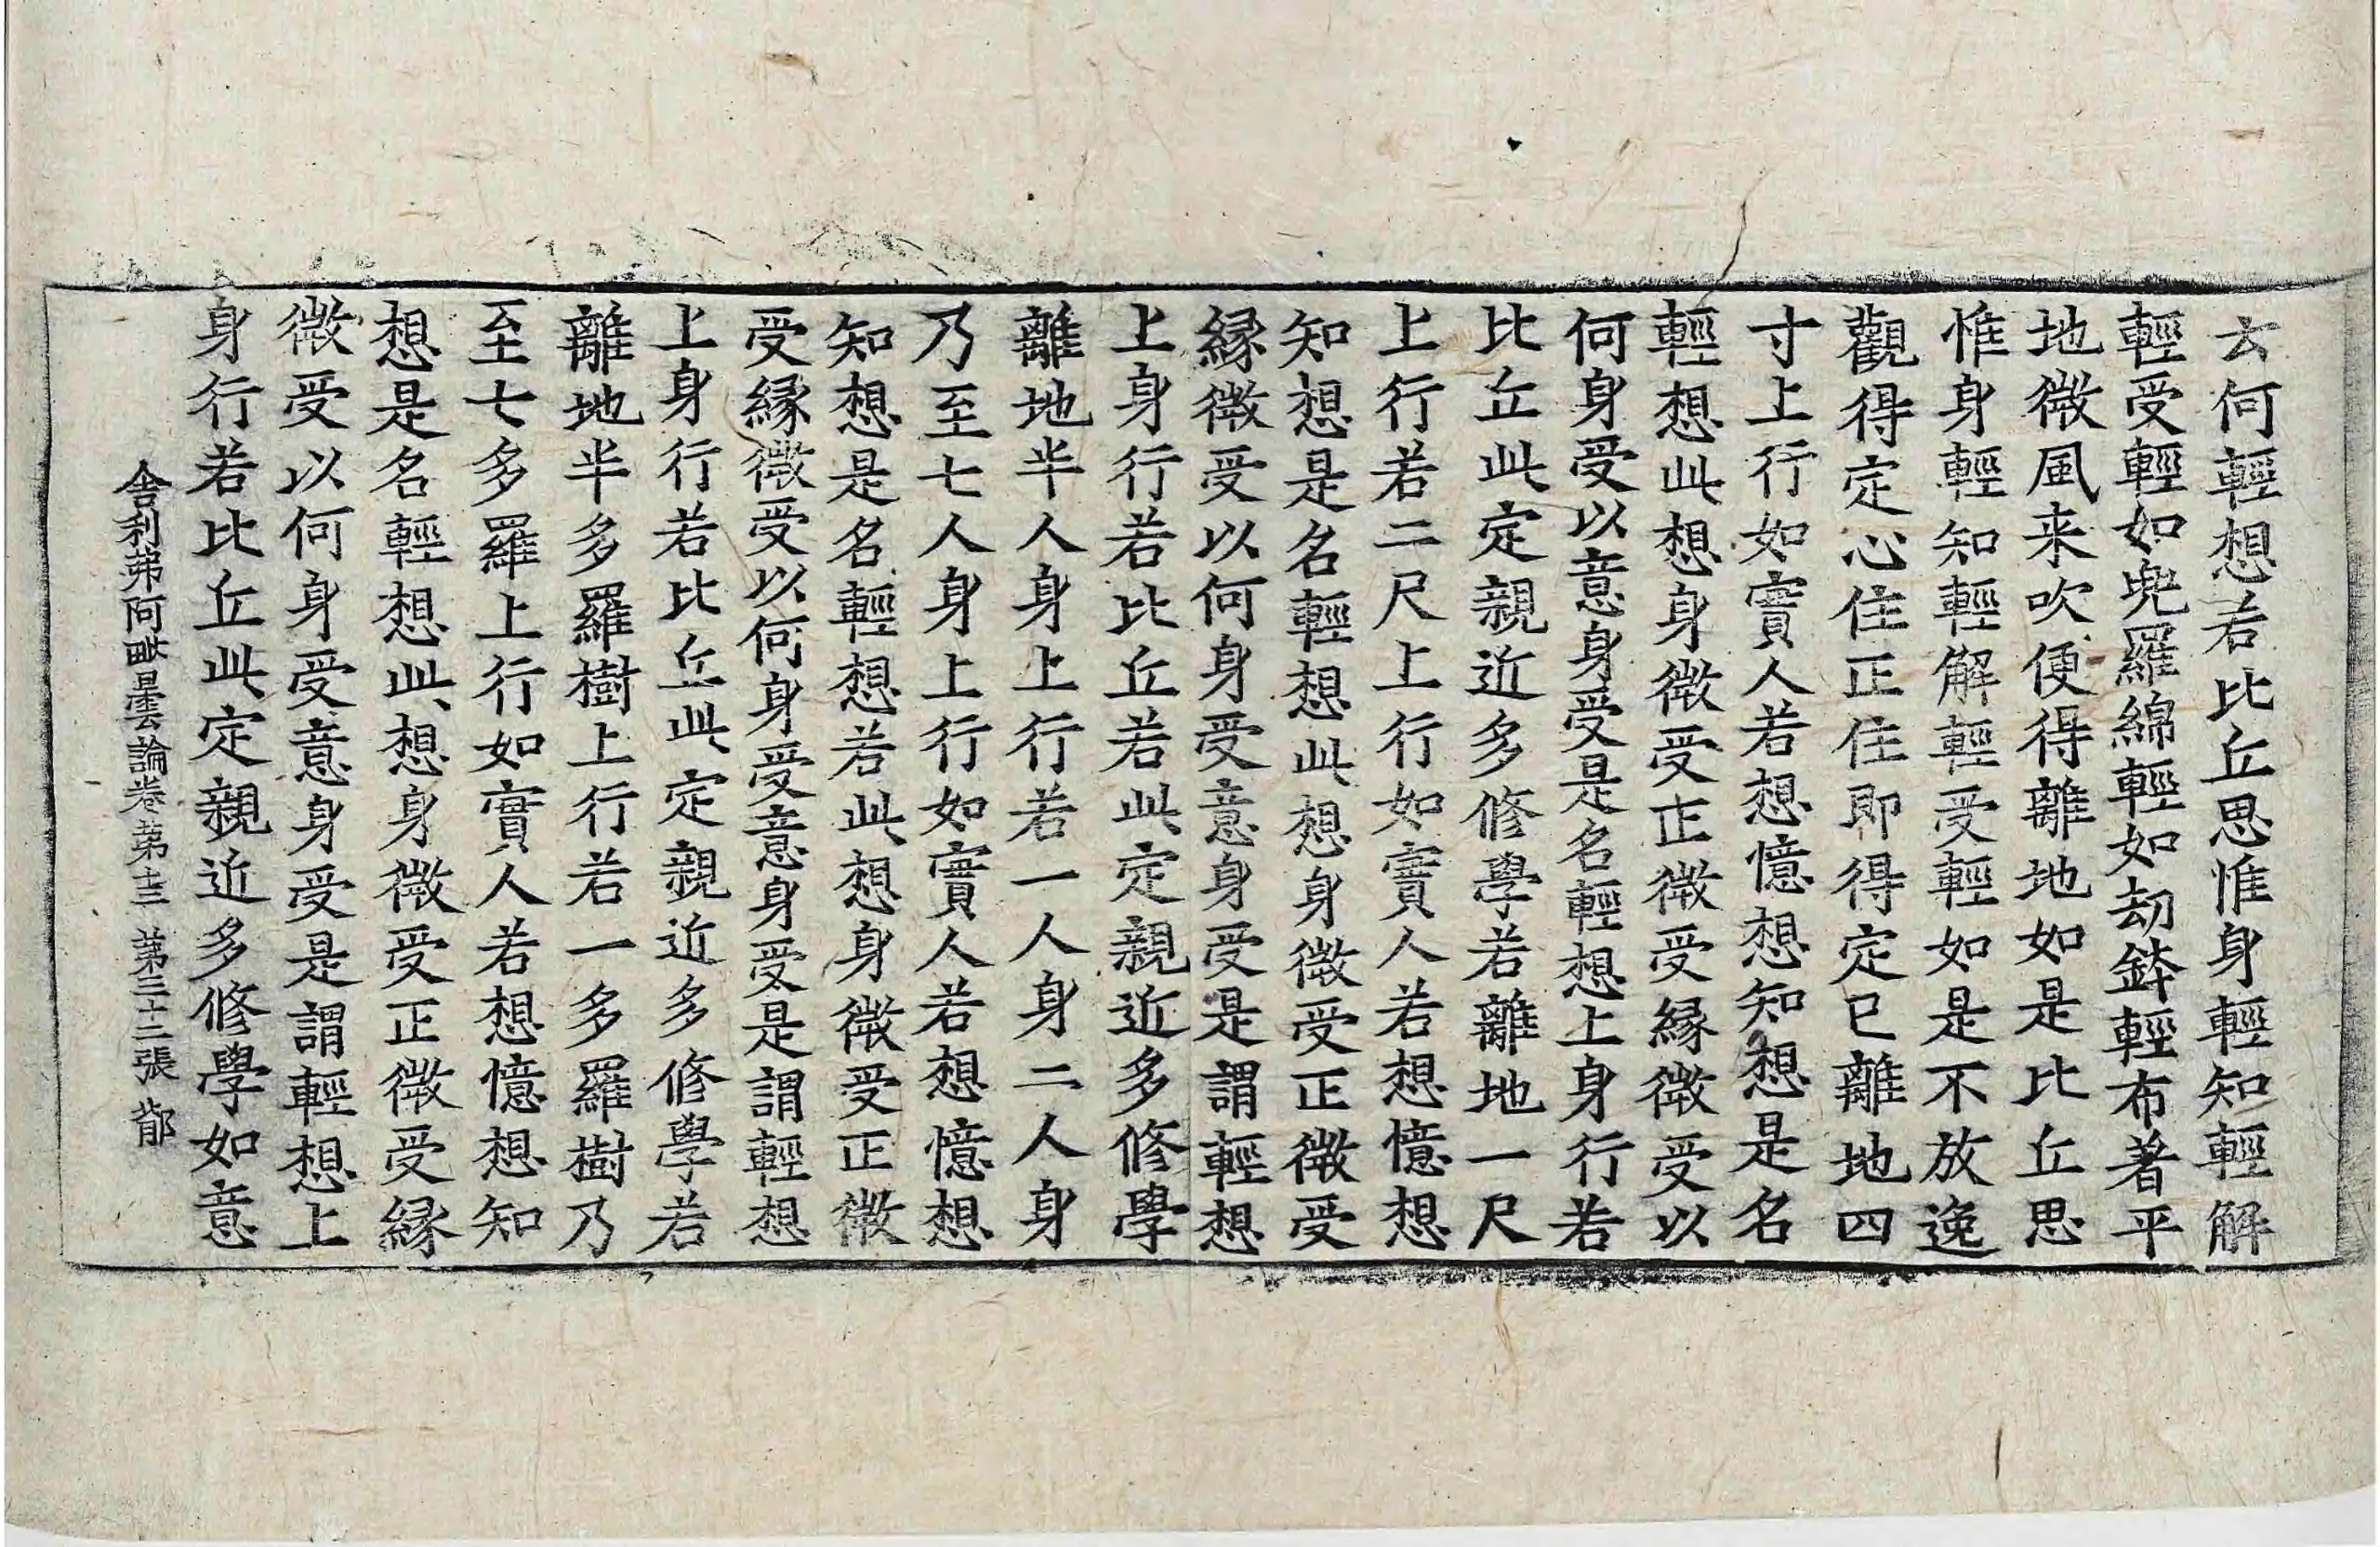 云何輕想若比丘思惟身輕知輕解
輕受輕如兜羅綿輕如劫鉢輕布著平
地微風来吹便得離地如是比丘思
惟身輕知輕解輕受輕如是不放逸
觀得定心住正住即得定已離地四
寸上行如實人若想憶想知想是名
輕想此想身微受正微受縁微受以
何身受以意身受是名輕想上身行若
比丘此定親近多修學若離地一尺
上行若二尺上行如實人若想憶想
知想是名輕想此想身微受正微受
縁微受以何身受意身受是謂輕想
上身行若比丘若此定親近多修學
離地半人身上行若一人身二人身
乃至七人身上行如實人若想憶想
知想是名輕想若此想身微受正微
受縁微受以何身受意身受是謂輕想
上身行若比丘此定親近多修學若
離地半多羅樹上行若一多羅樹乃
至七多羅上行如實人若想憶想知
想是名輕想此想身微受正微受縁
微受以何身受意身受是謂輕想上
身行若比丘此定親近多修學如意
舍利弗阿毗曇論卷第十三 第三十二張 郁